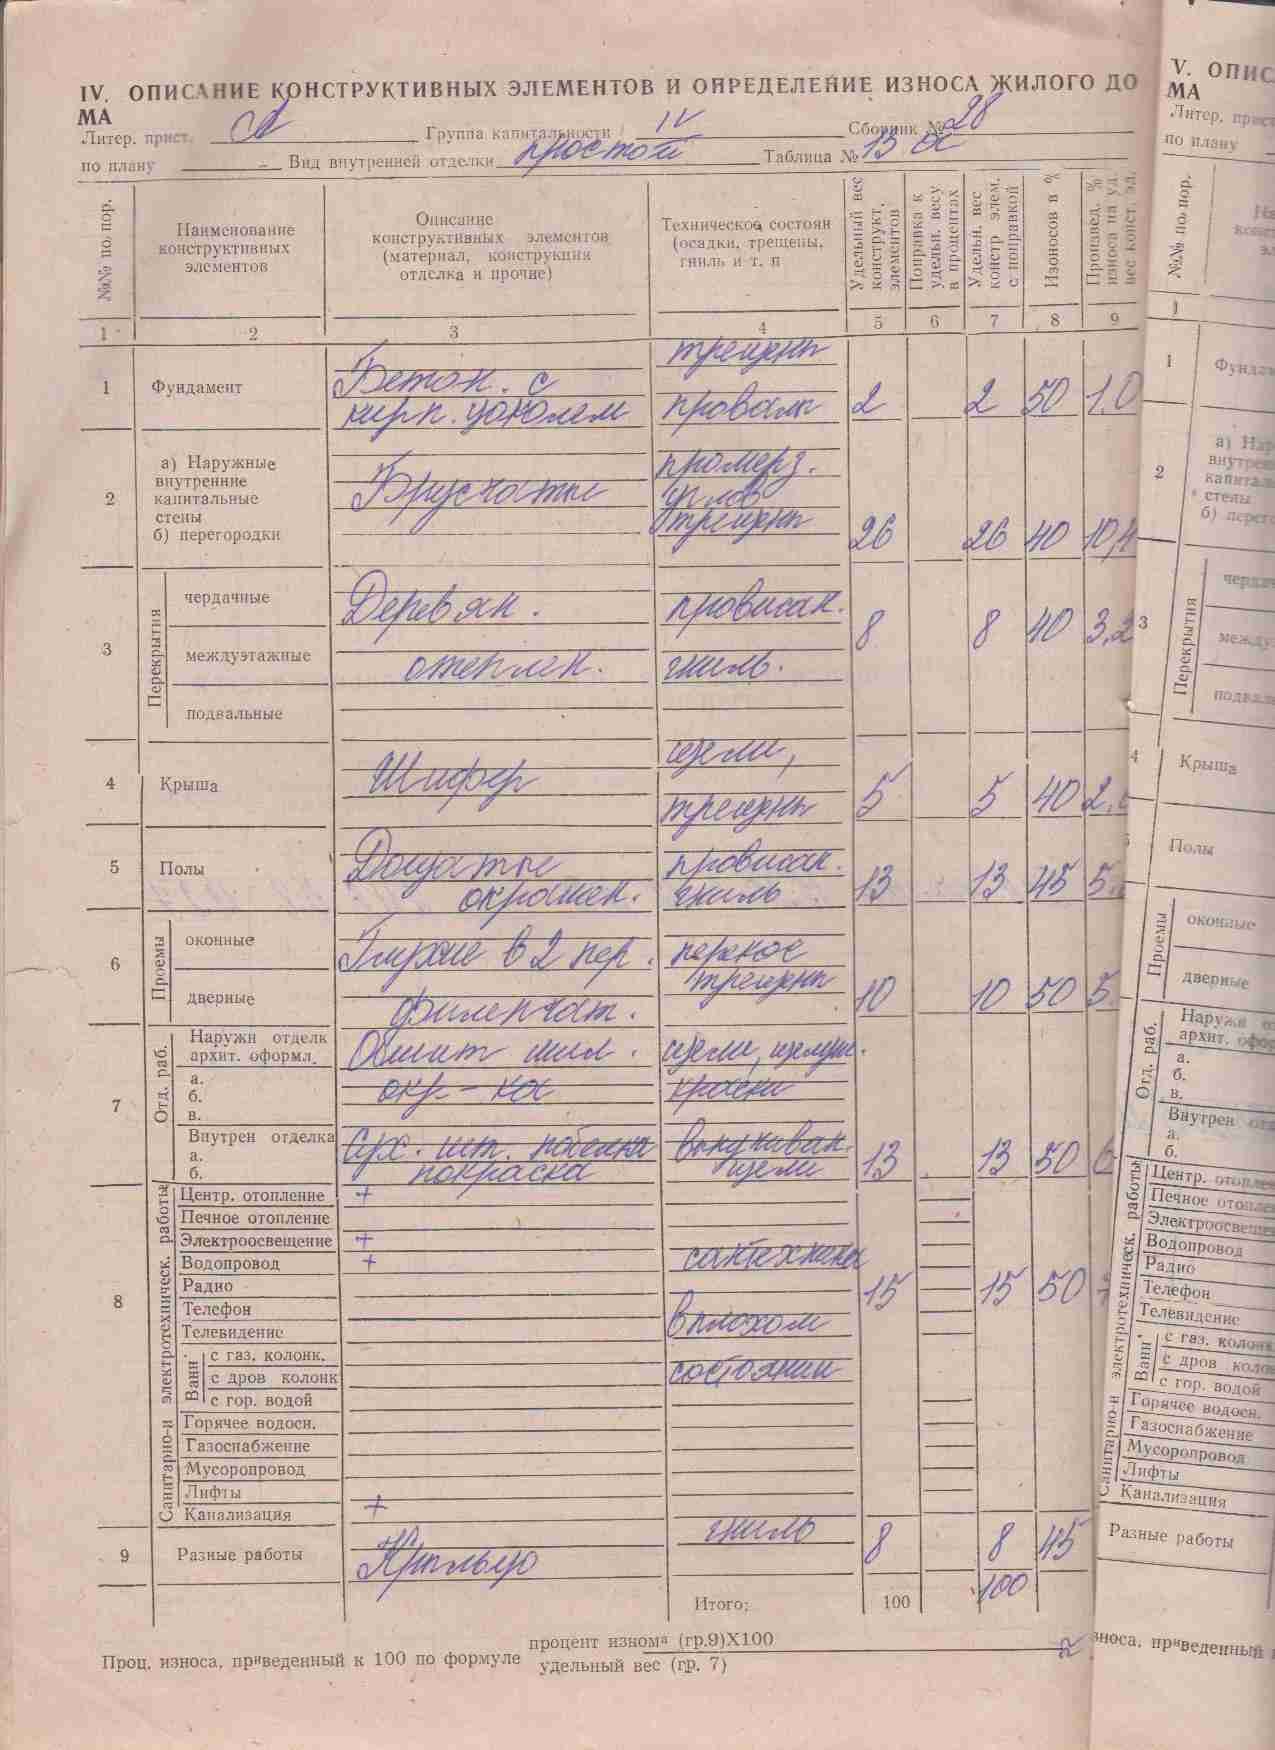 IV. ОПИСАНИЕ КОНСТРУКТИВНЫХ ЭЛЕМЕНТОВ И ОПРЕДЕЛЕНИЕ ИЗНОСА ЖИЛОГО ДО
МА
Литер. прист. А Группа капитальности IV Сборник № 28
по плану Вид внутренней отделки простой Таблица № 13
№№ по пор. Наименование конструктивных элементов Описание конструктивных элементов (материал, конструкция отделка и прочие) Техническое состоян (осадки, трещены, гниль и т. п Удельный вес конструкт. элементов Поправка к удельн. весу в процентах Удельн. вес констр элем. с поправкой Изоносов в % Произвед. % износа на уд. вес конст. эл.
1 2 3 4 5 6 7 8 9
трещины
1 Фундамент Бетон. с
кирп. цоколем провалы 2 2 50 1,0
а) Наружные внутренние капитальные стены промерз.
2 Брусчатые углов
б) перегородки трещины 26 26 40 10,4
Перекрытия
чердачные Деревян. провисан.
3 8 8 40 3,2
междуэтажные отеплен. гниль.
подвальные
щели,
4 Крыша Шифер
трещины 5 5 40 2,
5 Полы Дощатые провисан.
окрашен. гниль 13 13 45 5,
Проемы
оконные Глухие в 2 пер. перекос
6 трещины
дверные филенчат. 10 10 50 5,
Отд. раб.
Наружн отделк архит. оформл. Обшит шил. щели, шелуш.
а.
б. окр-ка краски
7 в.
Внутрен отделка Сух. шт. побелка выпучиван.
а.
б. покраска щели 13 13 50 6
Санитарно-и электротехническ. работы
Центр. отопление +
Печное отопление
Электроосвещение +
Водопровод + сантехника
8 Радио 15 15 50 7
Телефон
в плохом
Телевидение
Ванн
с газ. колонк.
с дров колонк состоянии
с гор. водой
Горячее водосн.
Газоснабжение
Мусоропровод
Лифты
Канализация +
гниль
9 Разные работы Крыльцо 8 8 45
Итого; 100 100
процент изнома (гр.9)Х100
Проц. износа, приведенный к 100 по формуле
удельный вес (гр. 7)
V. ОПИС
МА
Литер. прист
по плану
№№ по пор.
1
1 Фундам
а) Нар
внутренн
2 капиталь
стены
б) перег
Перекрытия
чердач
3 между
подвал
4 Крыша
Полы
Проемы
оконные
дверные
Отд. раб.
Наружн о
архит. оформ
а.
б.
в.
Внутрен отд
а.
б.
Санитарно-и электротехническ. работы
Центр. отопле
Печное отопле
Электроосвеще
Водопровод
Радио
Телефон
Телевидение
Ванн
с газ. колонк.
с дров коло
с гор. водой
Горячее водосн.
Газоснабжение
Мусоропровод
Лифты
Канализация
Разные работы
зноса, приведенный